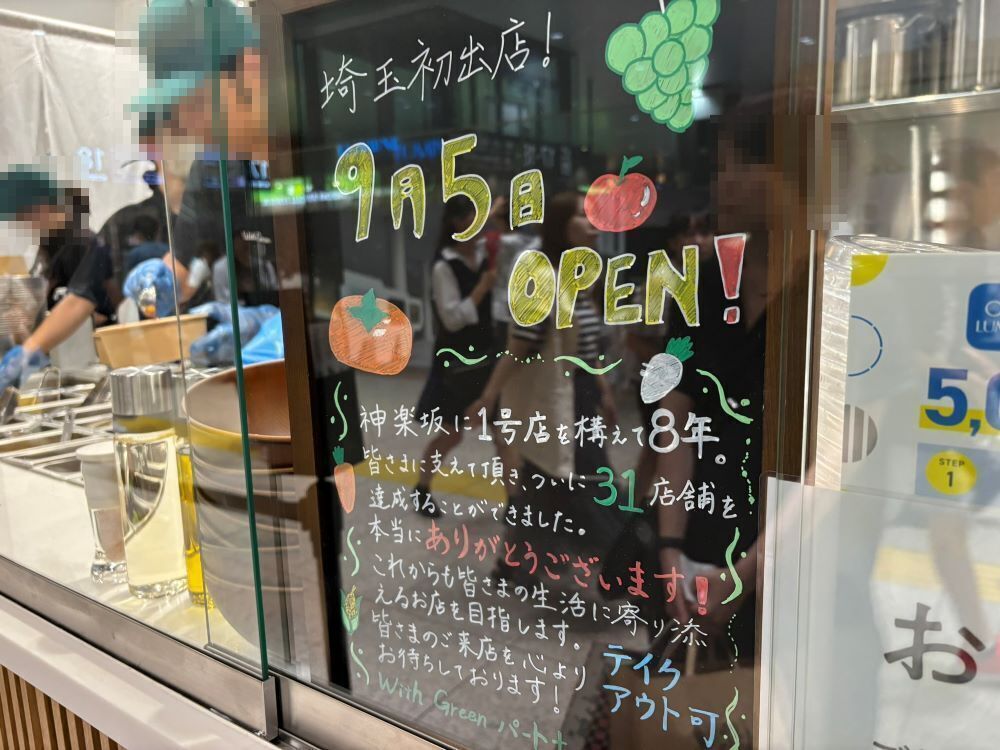 埼玉初出店!
9月5日
OPEN!
神楽坂に1号店を構えて8年。
皆さまに支えて頂き、ついに31店舗を
達成することができました。
本当にありがとうございます!
これからも皆さまの生活に寄り添
えるお店を目指します。
皆さまのご来店を心より
お待ちしております!
With Green パート
テイク
アウト可
STEP
1
お